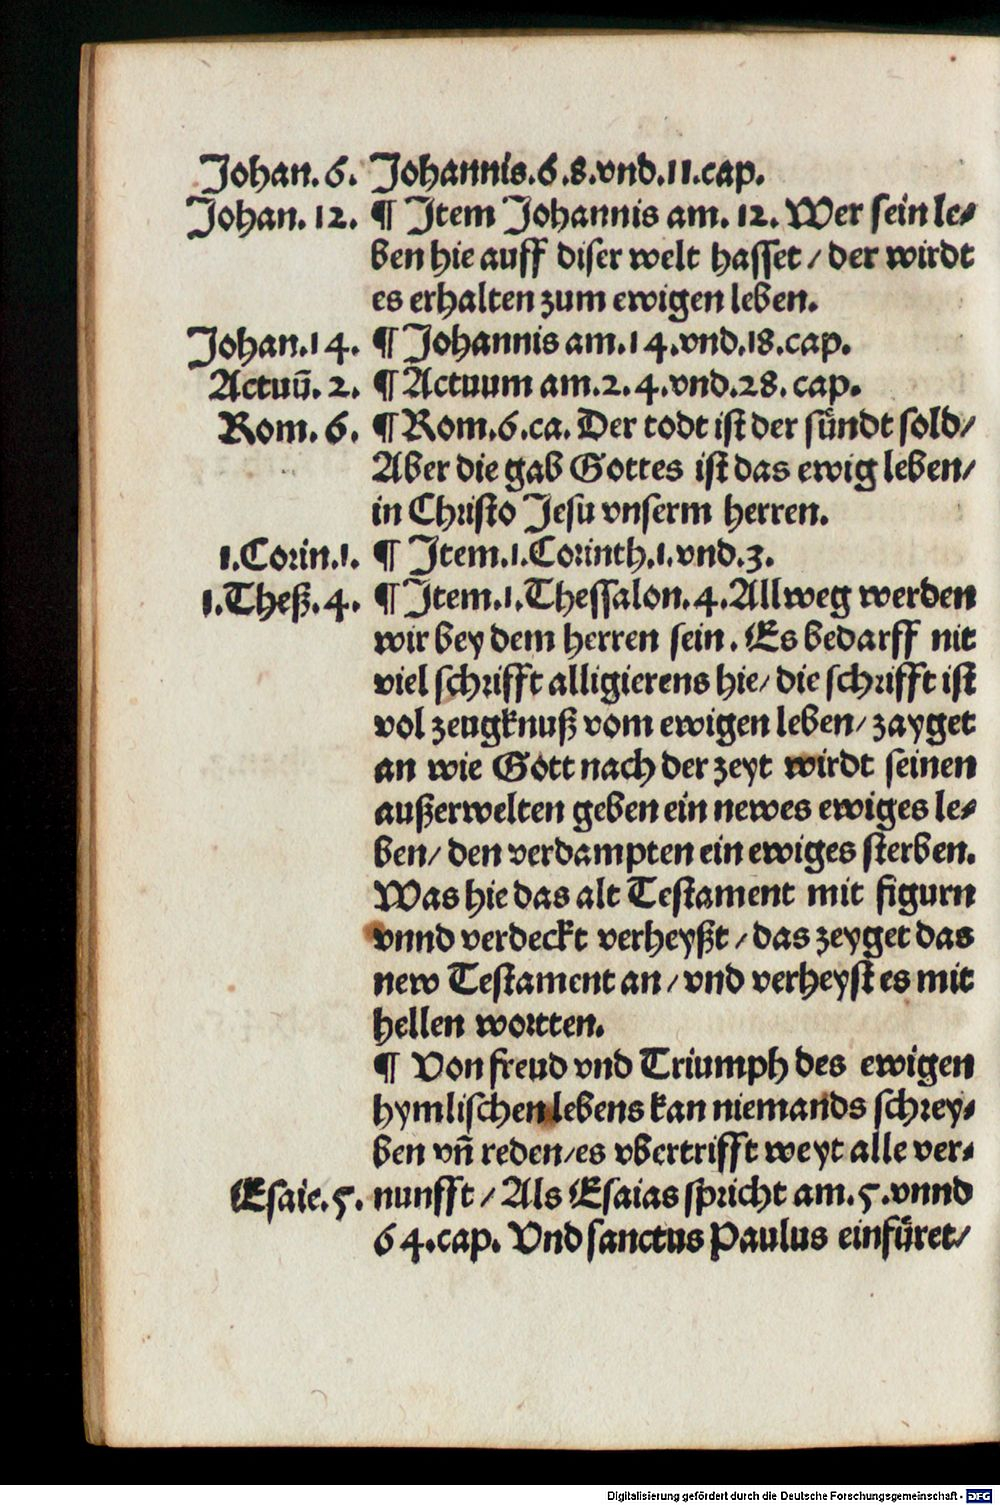 Johan. 6. Johannis.6.8.vnd.11.cap.
Johan. 12. ¶ Item Johannis am. 12. Wer sein le⸗
ben hie auff diser welt hasset / der wirdt
es erhalten zum ewigen leben.
Johan.14. ¶ Johannis am.14.vnd.18.cap.
Actuū. 2. ¶ Actuum am.2.4.vnd.28. cap.
Rom. 6. ¶ Rom.6.ca. Der todt ist der sündt sold/
Aber die gab Gottes ist das ewig leben/
in Christo Jesu vnserm herren.
1.Corin.1. ¶ Item.1.Corinth.1.vnd.3.
1.Theß.4. ¶ Item.1.Thessalon.4.Allweg werden
wir bey dem herren sein. Es bedarff nit
viel schrifft alligierens hie/ die schrifft ist
vol zeugknuß vom ewigen leben/ zayget
an wie Gott nach der zeyt wirdt seinen
außerwelten geben ein newes ewiges le⸗
ben/ den verdampten ein ewiges sterben.
Was hie das alt Testament mit figurn
vnnd verdeckt verheyßt / das zeyget das
new Testament an / vnd verheyst es mit
hellen wortten.
¶ Von freud vnd Triumph des ewigen
hymlischen lebens kan niemands schrey⸗
ben vn̄ reden/es vbertrifft weyt alle ver⸗
Esaie.5. nunfft / Als Esaias spricht am.5.vnnd
64.cap. Vnd sanctus Paulus einfüret/
Digitalisierung gefördert durch die Deutsche Forschungsgemeinschaft - DFG